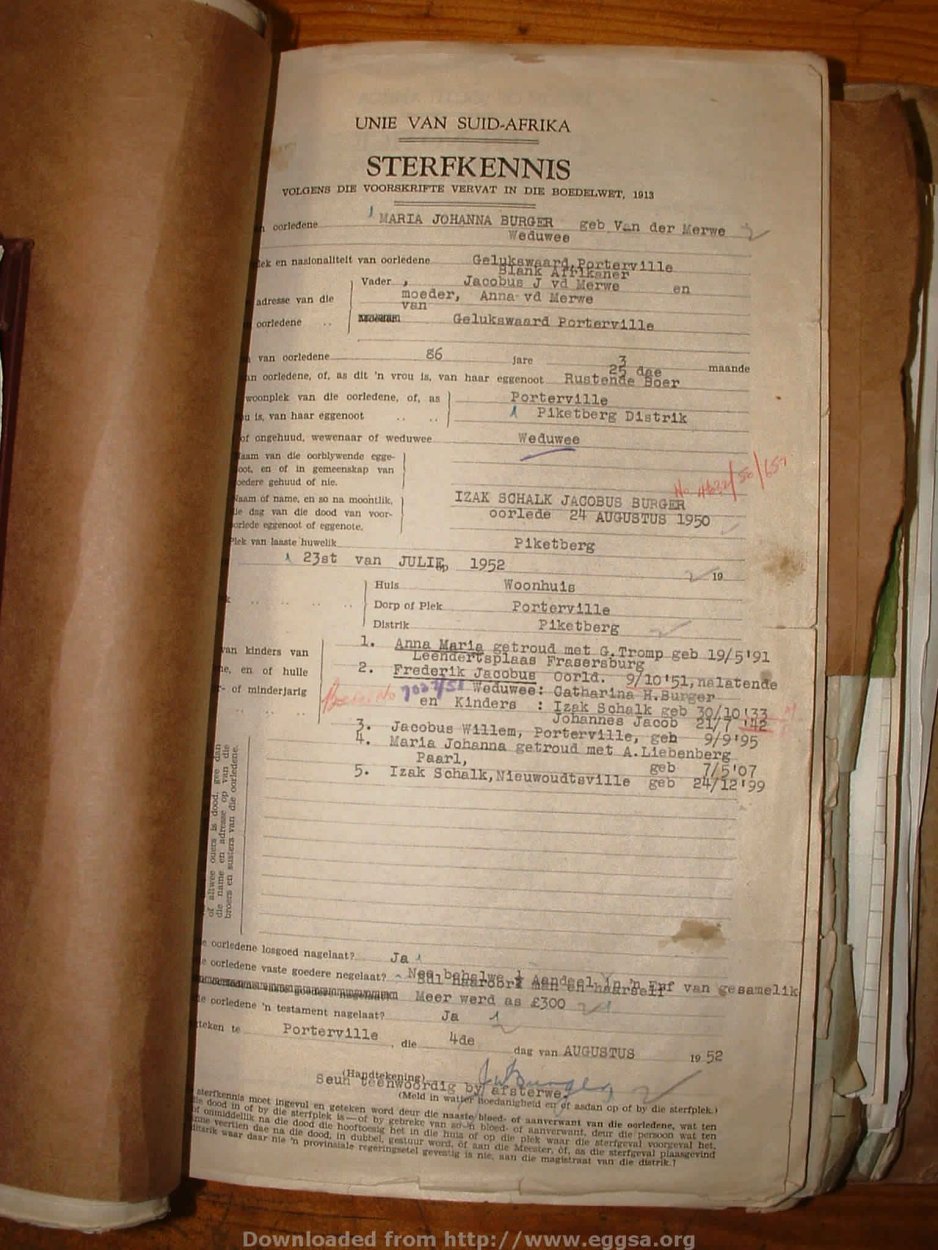 UNIE VAN SUID-AFRIKA
STERFKENNIS
VOLGENS DIE VOORSKRIFTE VERVAT IN DIE BOEDELWET, 1913
oorledene MARIA JOHANNA BURGER geb Van der Merwe
Weduwee
en nasionaliteit van oorledene Gelukswaard, Porterville
Blank Afrikaner
Vader, Jacobus J vd Merwe en
adresse van die moeder, Anna vd Merwe
van
oorledene Gelukswaard Porterville
van oorledene 86 jare 3 maande
25 dae
oorledene, of, as dit 'n vrou is, van haar eggenoot Rustende Boer
woonplek van die oorledene, of, as Porterville
is, van haar eggenoot Piketberg Distrik
of ongehuud, wewenaar of weduwee Weduwee
van die oorblywende egge-
en of in gemeenskap van
goedere gehuud of nie.
Naam of name, en so na moontlik, IZAK SCHALK JACOBUS BURGER
dag van die dood van voor- oorlede 24 AUGUSTUS 1950
eggenoot of eggenote.
Plek van laaste huwelik Piketberg
23st van JULIE, op 1952 19
Huis Woonhuis
Dorp of Plek Porterville
Distrik Piketberg
van kinders van 1. Anna Maria getroud met G.Tromp geb 19/5'91
Leendertsplaas Frasersburg
en of hulle 2. Frederik Jacobus Oorld. 9/10'51, nalatende
of minderjarig Weduwee: Catharina H.Burger
en Kinders : Izak Schalk geb 30/10'33
Johannes Jacob 21/7 '42
3. Jacobus Willem, Porterville, geb 9/9'95
4. Maria Johanna getroud met A.Liebenberg
Paarl, geb 7/5'07
5. Izak Schalk, Nieuwoudtsville geb 24/12'99
of altwee ouers is dood, gee dan
die name en adresse op van die
broers en susters van die oorledene.
oorledene losgoed nagelaat? Ja
oorledene vaste goedere negelaat? Nee behalwe Aandeel in 'n Erf van gesamelik
Meer werd as £300
oorledene 'n testament nagelaat? Ja
teken te Porterville, die 4de dag van AUGUSTUS 19 52
(Handtekening)
Seun teenwoordig by afsterwe.
(Meld in watter hoedanigheid en of aasdan op of by die sterfplek.)
sterfkennis moet ingevul en geteken word deur die naaste bloed- of aanverwant van die oorledene, wat ten
dood in of by die sterfplek is—of by gebreke van so-'n bloed- of aanverwant, deur die persoon wat ten
onmiddellik na die dood die hooftoesig het in die huis of op die plek waar die sterfgeval voorgeval het,
veertien dae na die dood, in dubbel, gestuur word, óf aan die Meester, óf, as die sterfgeval plaasgevind
waar daar nie 'n provinsiale regeringsetel gevestig is nie, aan die magistraat van die distrik.]
Downloaded from http://www.eggsa.org